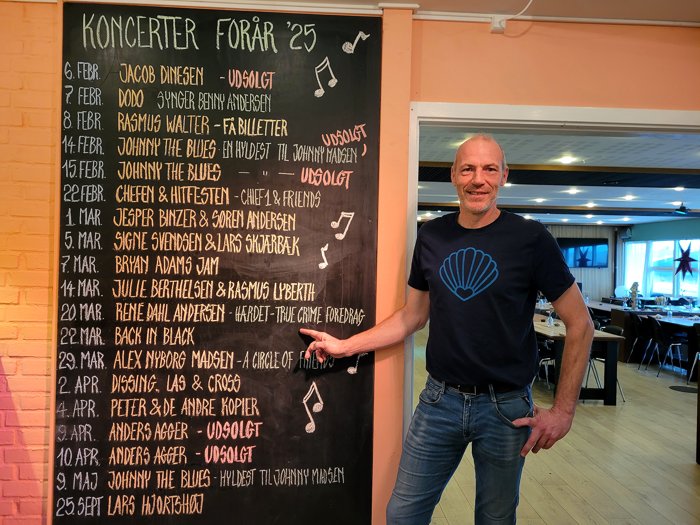 KONCERTER FORÅR '25
6. FEBR. JACOB DINESEN - UDSOLGT
7. FEBR DODO SYNGER BENNY ANDERSEN
8. FEBR RASMUS WALTER - FÅ BILLETTER
14. FEBR JOHNNY THE BLUES - EN HYLDEST TIL JOHNNY MADSEN, UDSOLGT
15. FEBR JOHNNY THE BLUES — " — UDSOLGT
22. FEBR CHEFEN & HITFESTEN - CHIEF 1 & FRIENDS
1. MAR JESPER BINZER & SØREN ANDERSEN
5. MAR. SIGNE SVENDSEN & LARS SKJÆRBÆK
7. MAR. BRYAN ADAMS JAM
14. MAR JULIE BERTHELSEN & RASMUS LYBERTH
20 MAR RENE DAHL ANDERSEN - HÆRDET - TRUE CRIME FOREDRAG
22. MAR BACK IN BLACK
29. MAR. ALEX NYBORG MADSEN - A CIRCLE OF FRIENDS
2. APR. DISSING, LAS & CROSS
4. APR PETER & DE ANDRE KOPIER
9. APR ANDERS AGGER - UDSOLGT
10. APR ANDERS AGGER - UDSOLGT
9. MAJ JOHNNY THE BLUES - HYLDEST TIL JOHNNY MADSEN
25. SEPT LARS HJORTSHØJ